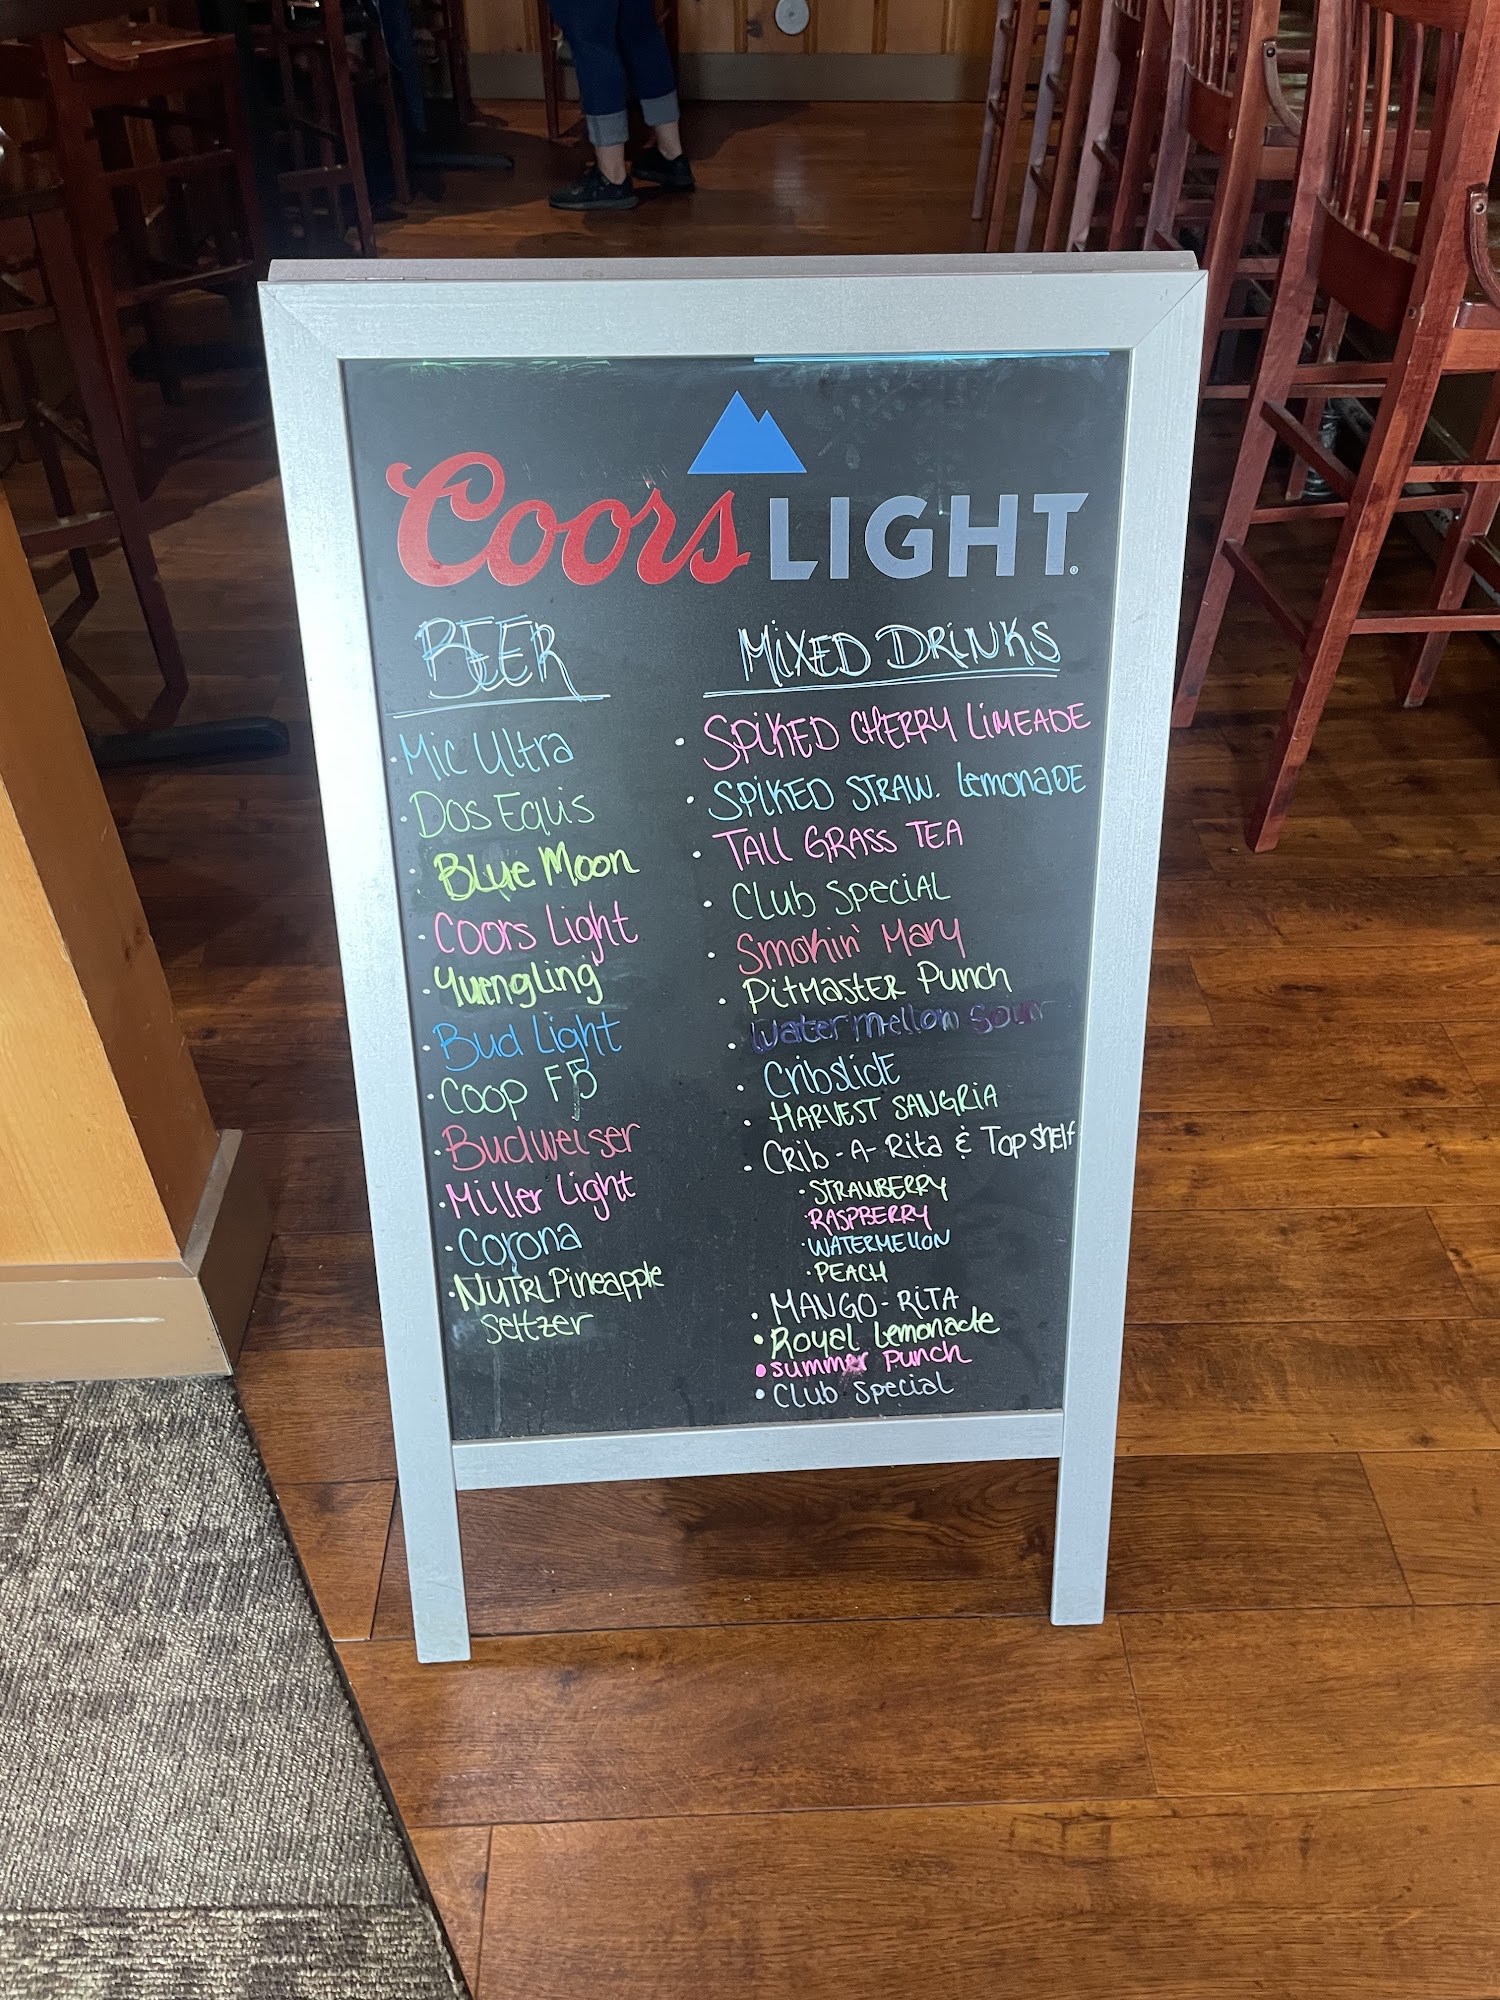 Coors LIGHT®
BEER
· Mic Ultra
· Dos Equis
· Blue Moon
· Coors Light
· Yuengling
· Bud Light
· Coop F5
· Budweiser
· Miller Light
· Corona
· NUTRL Pineapple
seltzer
MIXED DRINKS
· SPIKED CHERRY LIMEADE
· SPIKED STRAW. LemonaDE
· TALL GRASS TEA
· Club Special
· Smokin' Mary
· PitMastER Punch
· Watermellon Sour
· CribslidE
· HARVEST SANGRIA
· CRib-A-Rita & Top shelf
· STRAWBERRY
· RASPBERRY
· WATERMELLON
· PEACH
· MANGO-RITA
· Royal Lemonade
· summer punch
· Club Special